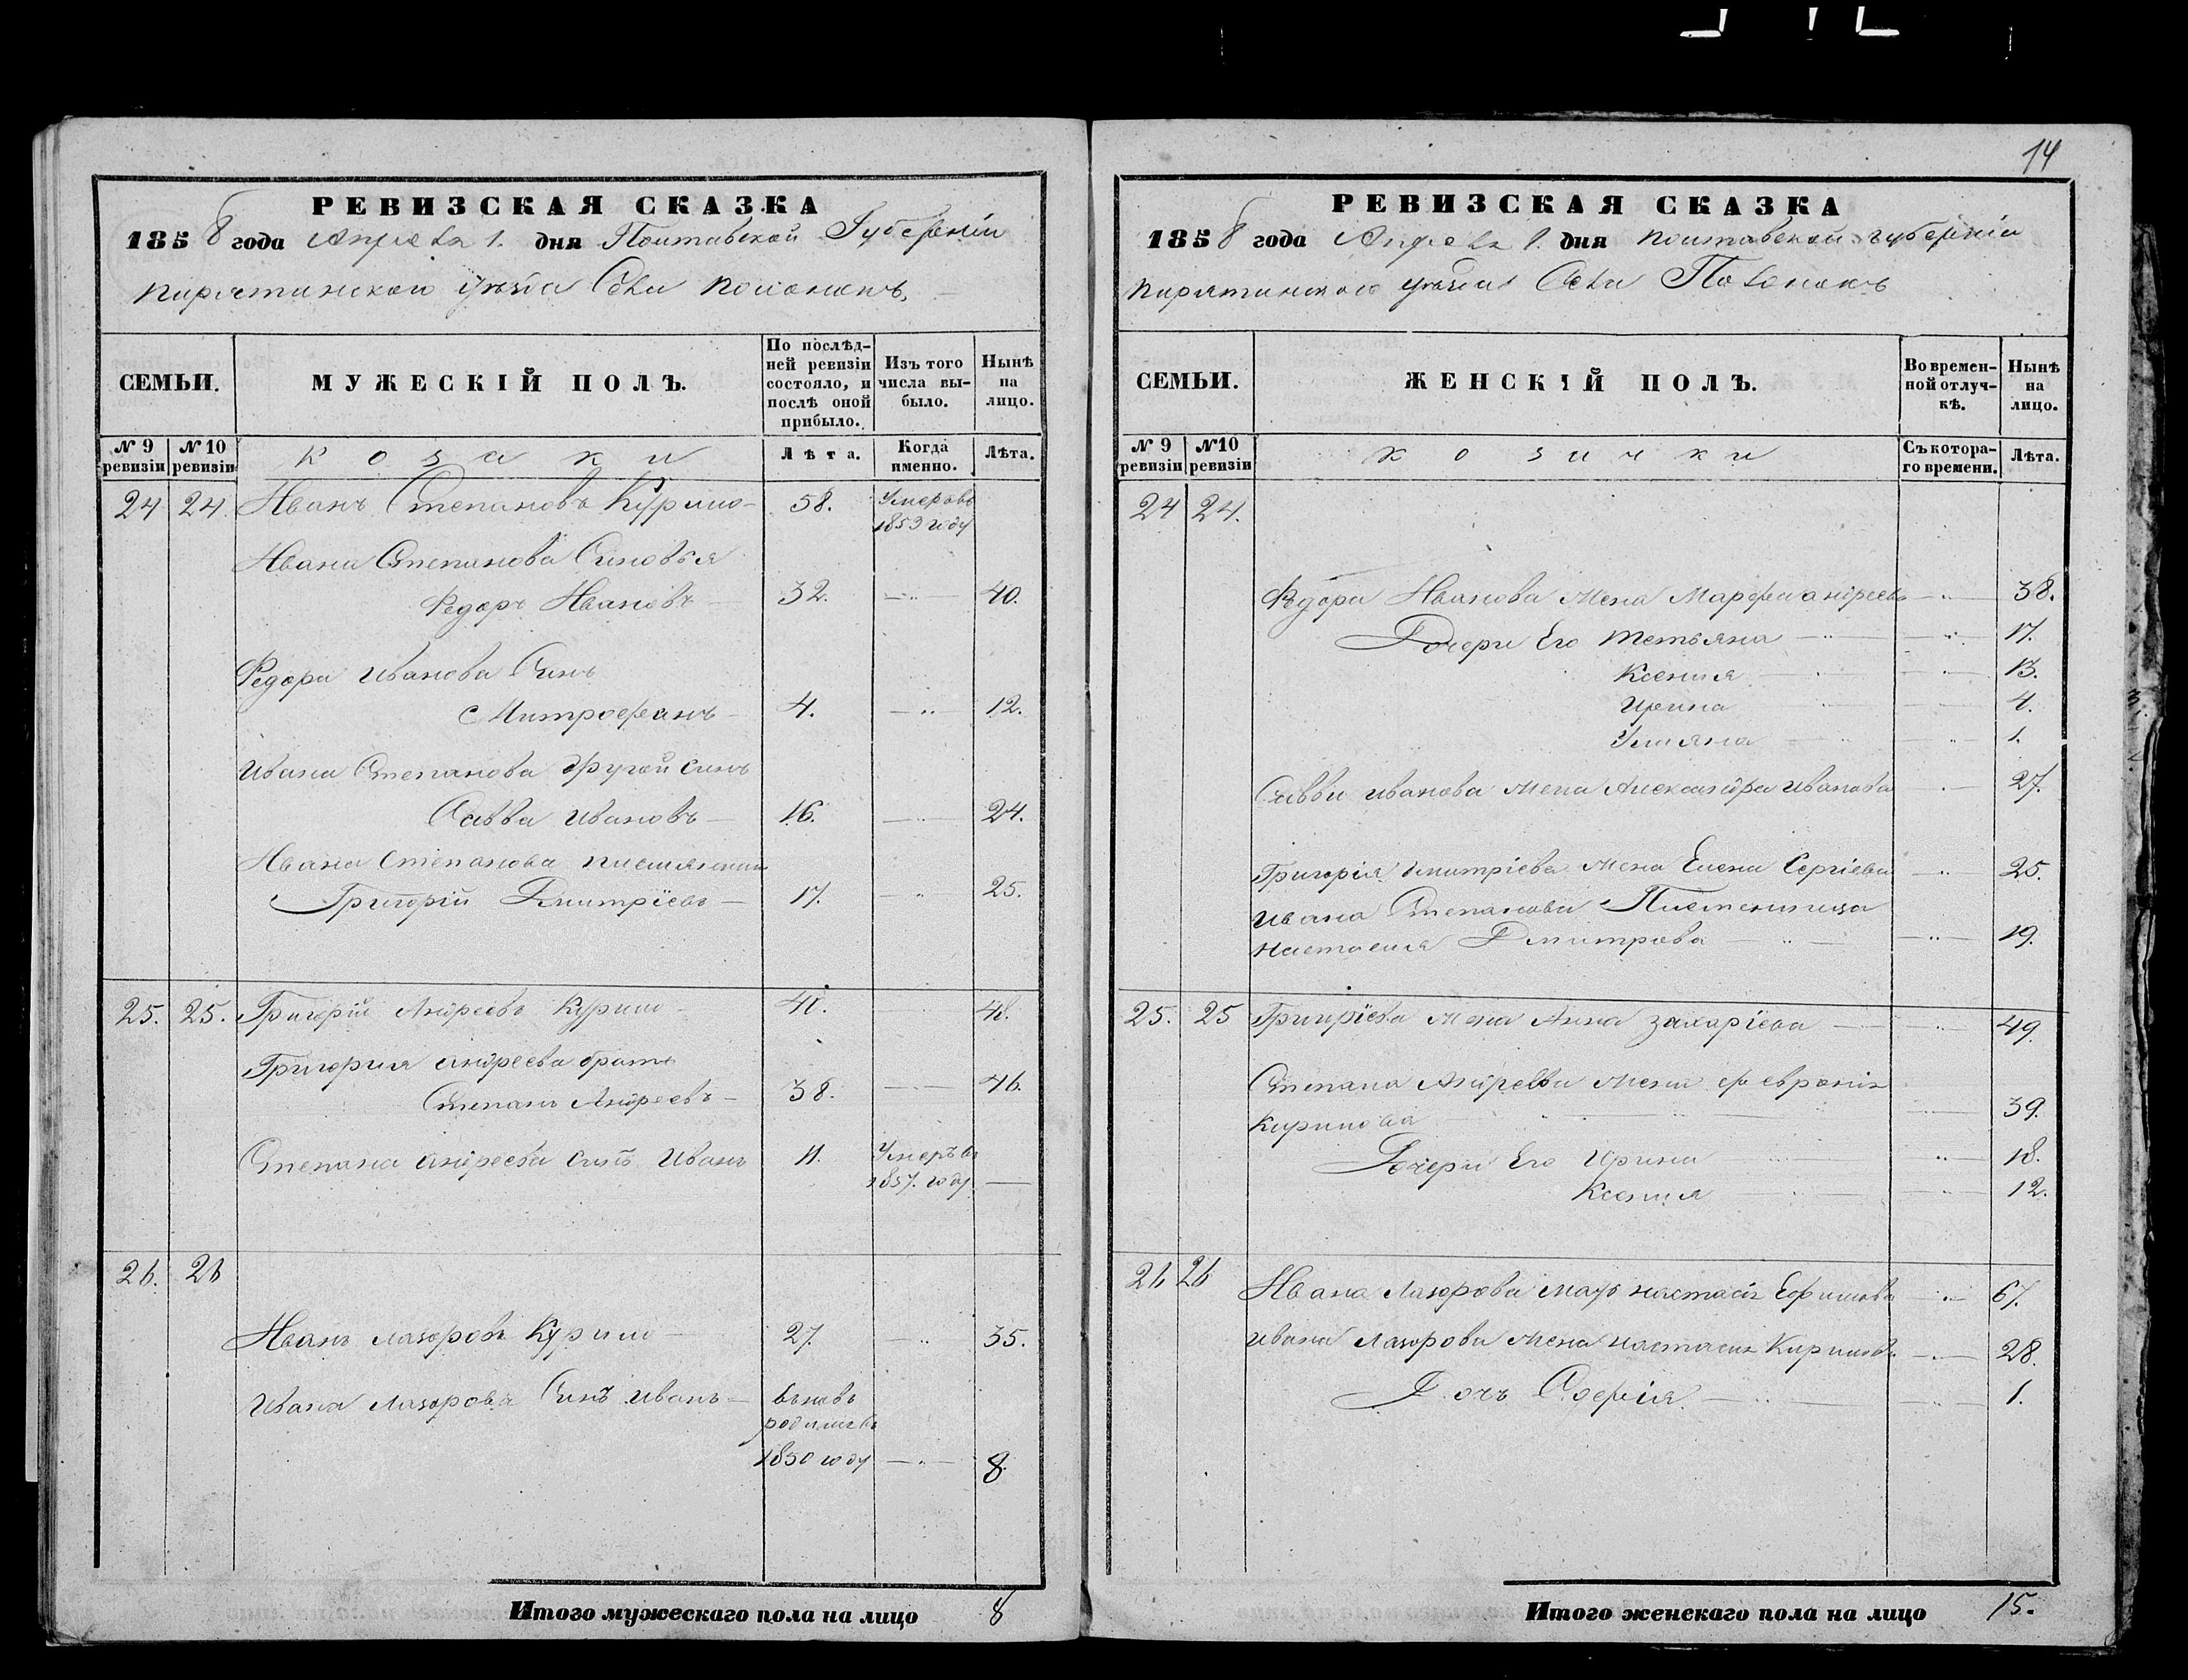 14
РЕВИЗСКАЯ СКАЗКА
1858 года Апреля 1. дня Полтавской Губерніи
Пирятинского уезда Села
СЕМЬИ.
МУЖЕСКІЙ ПОЛЪ.
По послѣд-
ней ревизіи
состояло, и
послѣ оной
прибыло.
Изъ того
числа вы-
было.
Нынѣ
на
лицо.
№ 9
ревизіи
№ 10
ревизіи
козаки
Лѣта.
Когда
именно.
Лѣта.
24 24. Иванъ Степановъ 58. Умеръ въ
1853 году
Ивана Степанова Синовья
Федоръ Ивановъ 32. 40.
Федора Иванова Синъ
Митрофанъ 4. 12.
Ивана Степанова другой синъ
Савва Ивановъ 16. 24.
Ивана Степанова
Григорій Дмитріевъ 17. 25.
25. 25. Григорій Андреевъ
Григория Андреева братъ
Степанъ Андреевъ 38. 46.
Степана Андреева синъ Иванъ 11. Умеръ въ
1857. году
26. 26
Иванъ Лазоровъ 27. 35.
Ивана Лазорова Синъ Иванъ вьновь
родился въ
1850 году 8.
Итого мужескаго пола на лицо 8
РЕВИЗСКАЯ СКАЗКА
1858 года Апреля 1. дня Полтавской губерніи
Пирятинского уезда Села
СЕМЬИ.
ЖЕНСКІЙ ПОЛЪ.
Во времен-
ной отлуч-
кѣ.
Нынѣ
на
лицо.
№ 9
ревизіи
№10
ревизіи
козачки
Съ котора-
го времени.
Лѣта.
24 24.
Федора Иванова Жена Марфа Андреева 38.
Дочери Его Тетьяна 17.
Ксения 13.
Ирина 4.
Улияна 1.
Саввы Иванова Жена Александра Иванова 27.
Григорія Дмитріева Жена Елена Сергіева 25.
Ивана Степанова
Настасия Дмитрова 19.
25. 25 Григоріева Жена Анна Захаріева 49.
Степана Андреева Жена
39.
Дочери Его Ирина 18.
Ксения 12.
26 26 Ивана Лазорова Мать Настасія Ефимова 67.
Ивана Лазорова Жена Настасия 28.
Дочь Софія 1.
Итого женскаго пола на лицо 15.